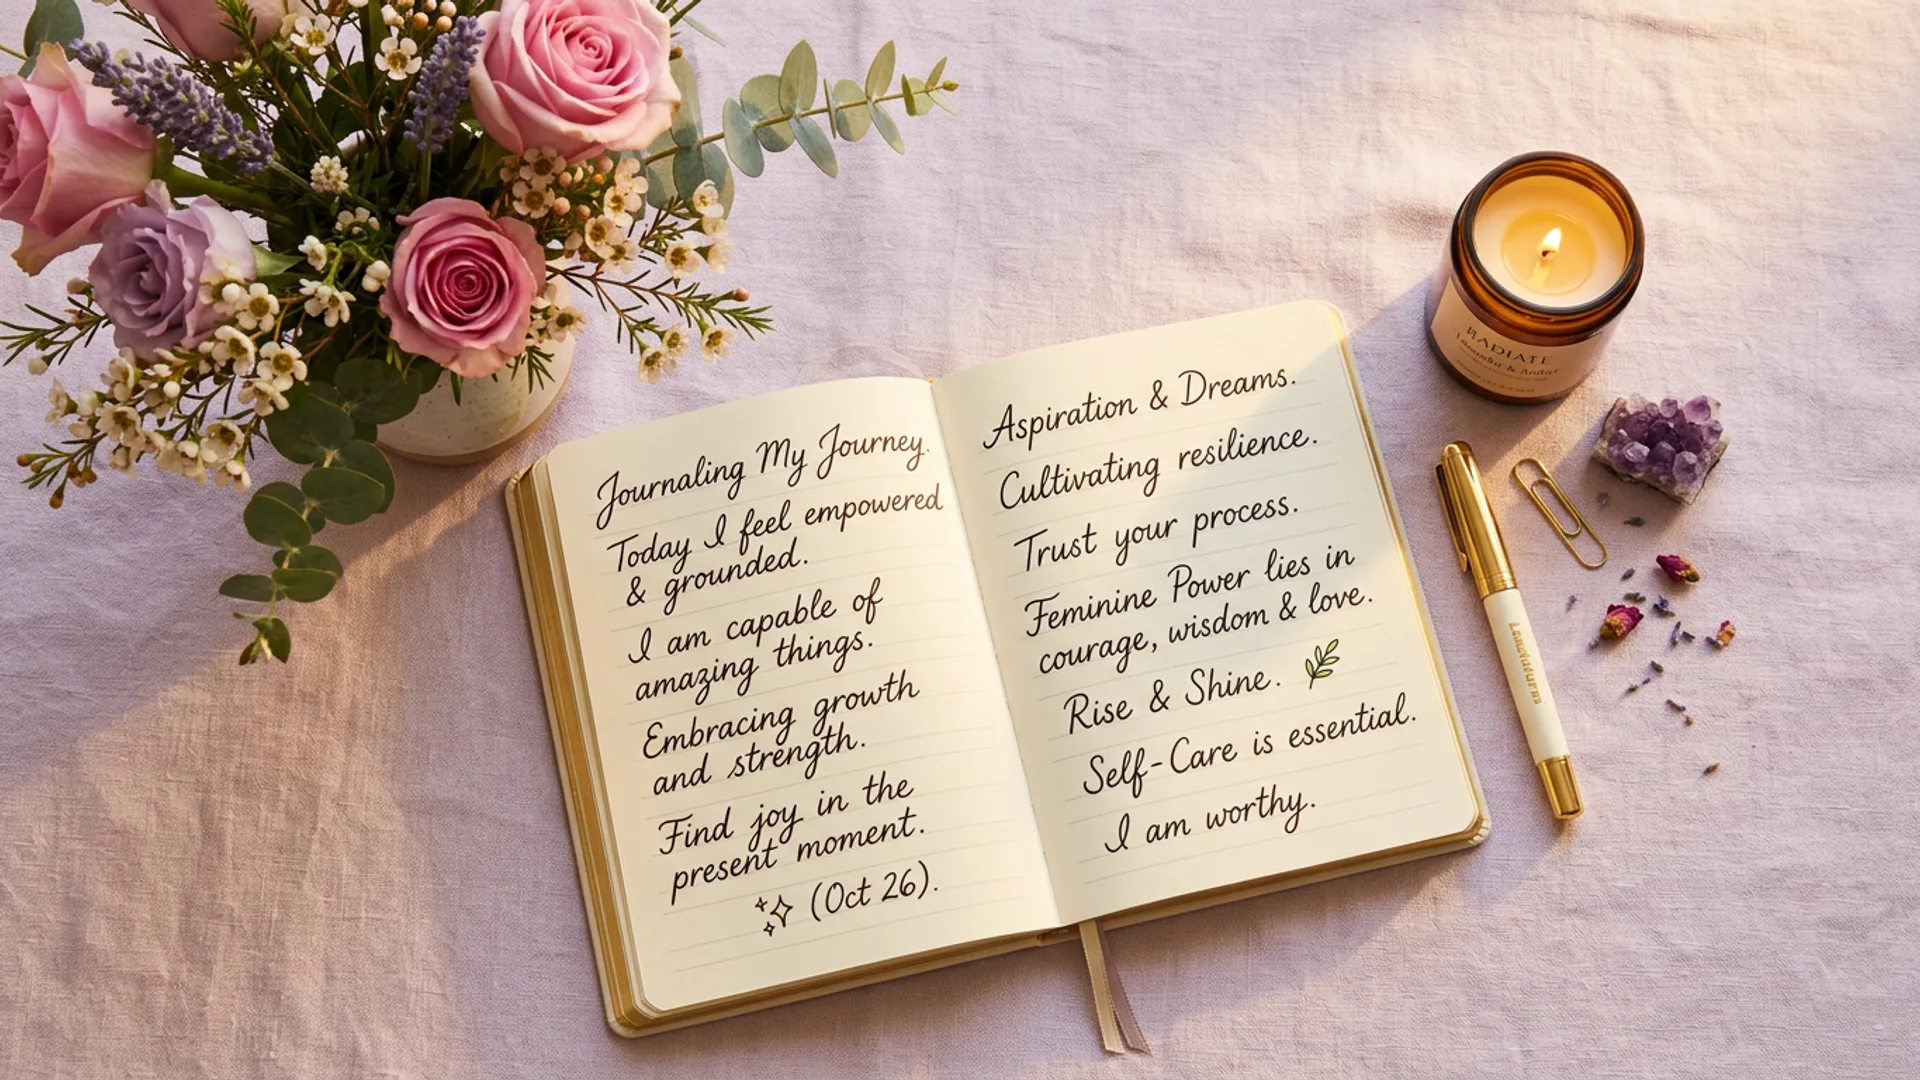 Journaling My Journey.
Today I feel empowered
& grounded.
I am capable of
amazing things.
Embracing growth
and strength.
Find joy in the
present moment.
(Oct 26).
Aspiration & Dreams.
Cultivating resilience.
Trust your process.
Feminine Power lies in
courage, wisdom & love.
Rise & Shine.
Self-Care is essential.
I am worthy.
RADIATE